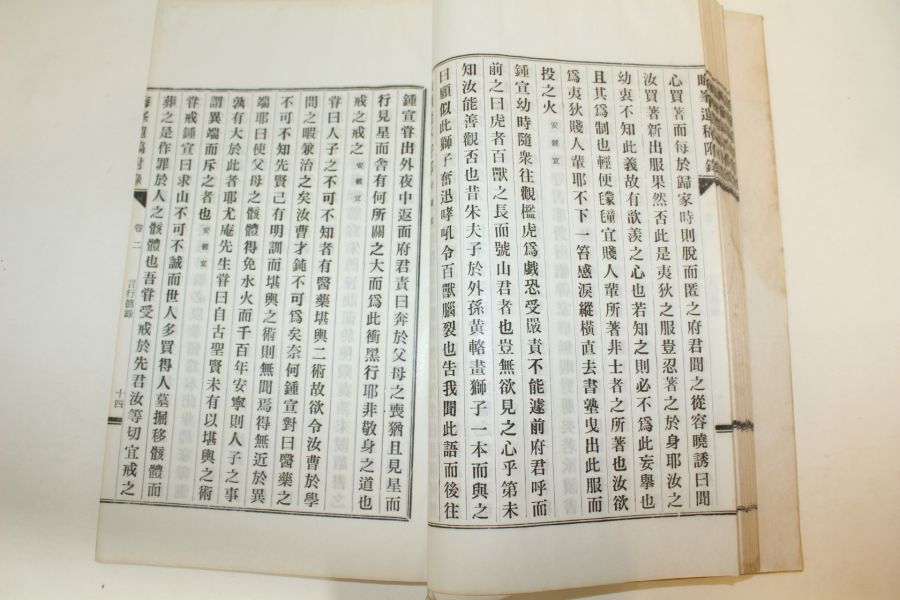 心買著而每於歸家時則脫而匿之府君聞之從容曉誘曰聞
汝買著新出服果然否此是夷狄之服豈忍著之於身耶汝之
幼衷不知此義故有歆羨之心也若知之則必不爲此妄擧也
且其爲制也輕便氋氃宜賤人輩所著非士者之所著也汝欲
爲夷狄賤人輩耶不下一笞感淚縱橫直去書塾曳出此服而
投之火 安鍾宣
鍾宣幼時隨衆往觀檻虎爲戱恐受嚴責不能遽前府君呼而
前之曰虎者百獸之長而號山君者也豈無欲見之心乎第未
知汝能善觀否也昔朱夫子於外孫黃輅畫獅子一本而與之
曰願似此獅子奮迅哮吼令百獸腦裂也告我聞此語而後往
鍾宣嘗出外夜中返面府君責曰奔於父母之喪猶且見星而
行見星而舍有何所關之大而爲此衝黑行耶非敬身之道也
戒之戒之 安鍾宣
嘗曰人子之不可不知者有醫藥堪輿二術故欲令汝曹於學
問之暇兼治之矣汝曹才鈍不可爲矣奈何鍾宣對曰醫藥之
不可不知先賢已有明訓而堪輿之術則無聞焉得無近於異
端耶曰使父母之骸體得免水火而千百年安寧則人子之事
孰有大於此者耶尤庵先生嘗曰自古聖賢未有以堪輿之術
謂異端而斥之者也 安鍾宣
嘗戒鍾宣曰求山不可不誠而世人多買得人墓掘移骸體而
葬之是作罪於人之骸體也吾嘗受戒於先君汝等切宜戒之
卷二 言行摭錄 十四